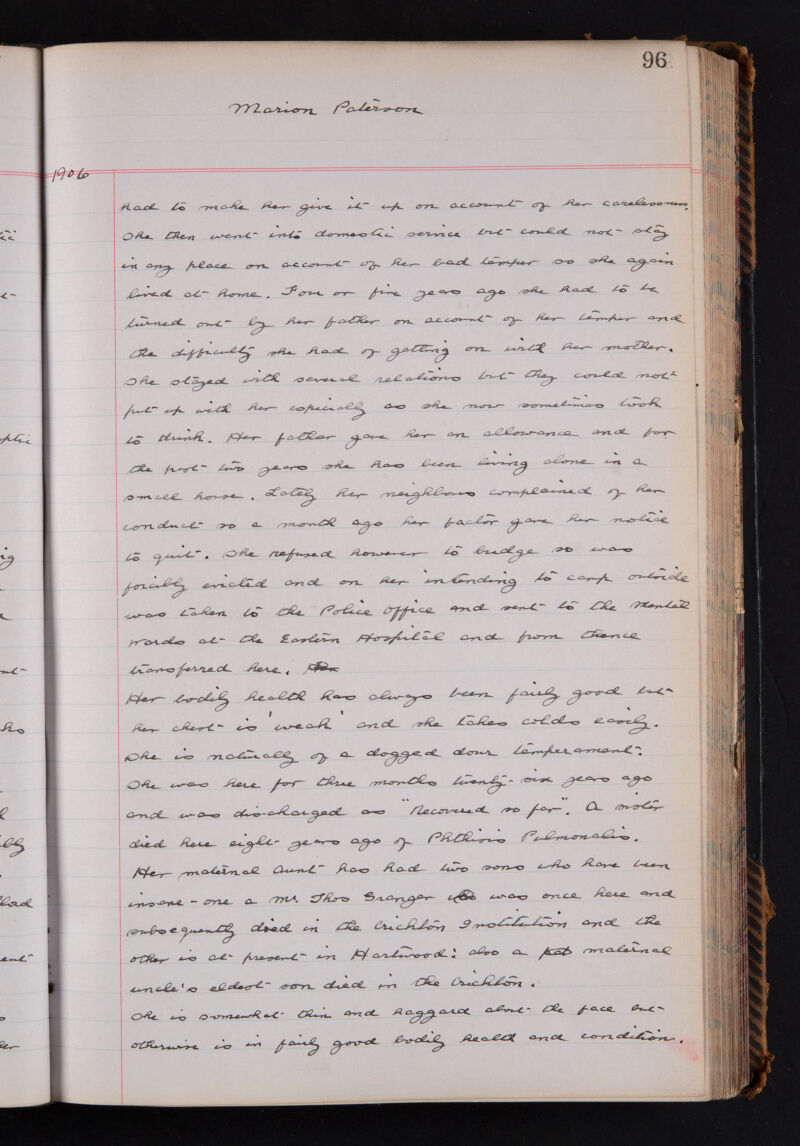 96
Marion Paterson
1906
had to make her give it up on account of her carelessness.
She then went into domestic service but could not stay
in any place on account of her bad temper so she again
lived at home. Four or five years ago she had to be
turned out by her father on account of her temper and
the difficulty she had of getting on with her mother.
She stayed with several relations but they could not
put up with her especially as she now sometimes took
to drink. Her father gave her an allowance and for
the past two years she has been living alone in a
small house. Lately her neighbours complained of her
conduct so a month ago her factor gave her notice
to quit. She refused however to budge so was
forcibly evicted and on her intending to camp outside
was taken to the Police Office and sent to the Mental
Wards at the Eastern Hospital and from thence
transferred here. Her
Her bodily health has always been fairly good but
her chest is 'weak' and she takes colds easily.
She is naturally of a dogged dour temperament.
She was here for three months twenty-six years ago
and was discharged as "Recovered so far". A sister
died here eight years ago of Phthisis Pulmonalis.
Her maternal Aunt has had two sons who have been
insane - one a Mr. Thos Granger was once here and
subsequently died in the Crichton Institution and the
other is at present in Hartwood: also a maternal
uncle's eldest son died in the Crichton.
She is somewhat thin and haggard about the face but
otherwise is in fairly good bodily health and condition.